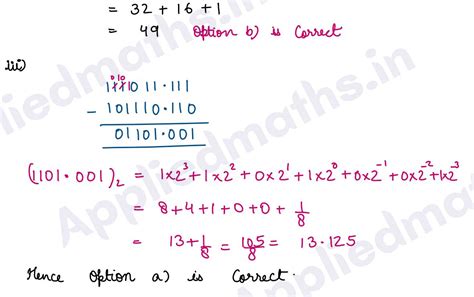 = 32 + 16 + 1
= 49 Option b) is Correct
iii)
0 10
111011.111
- 101110.110
01101.001
(1101.001)₂ = 1x2³+1x2²+0x2¹+1x2⁰+0x2⁻¹+0x2⁻²+1x2⁻³
= 8+4+1+0+0+1/8
= 13+1/8 = 105/8 = 13.125
Hence Option a) is Correct.
Appliedmaths.in